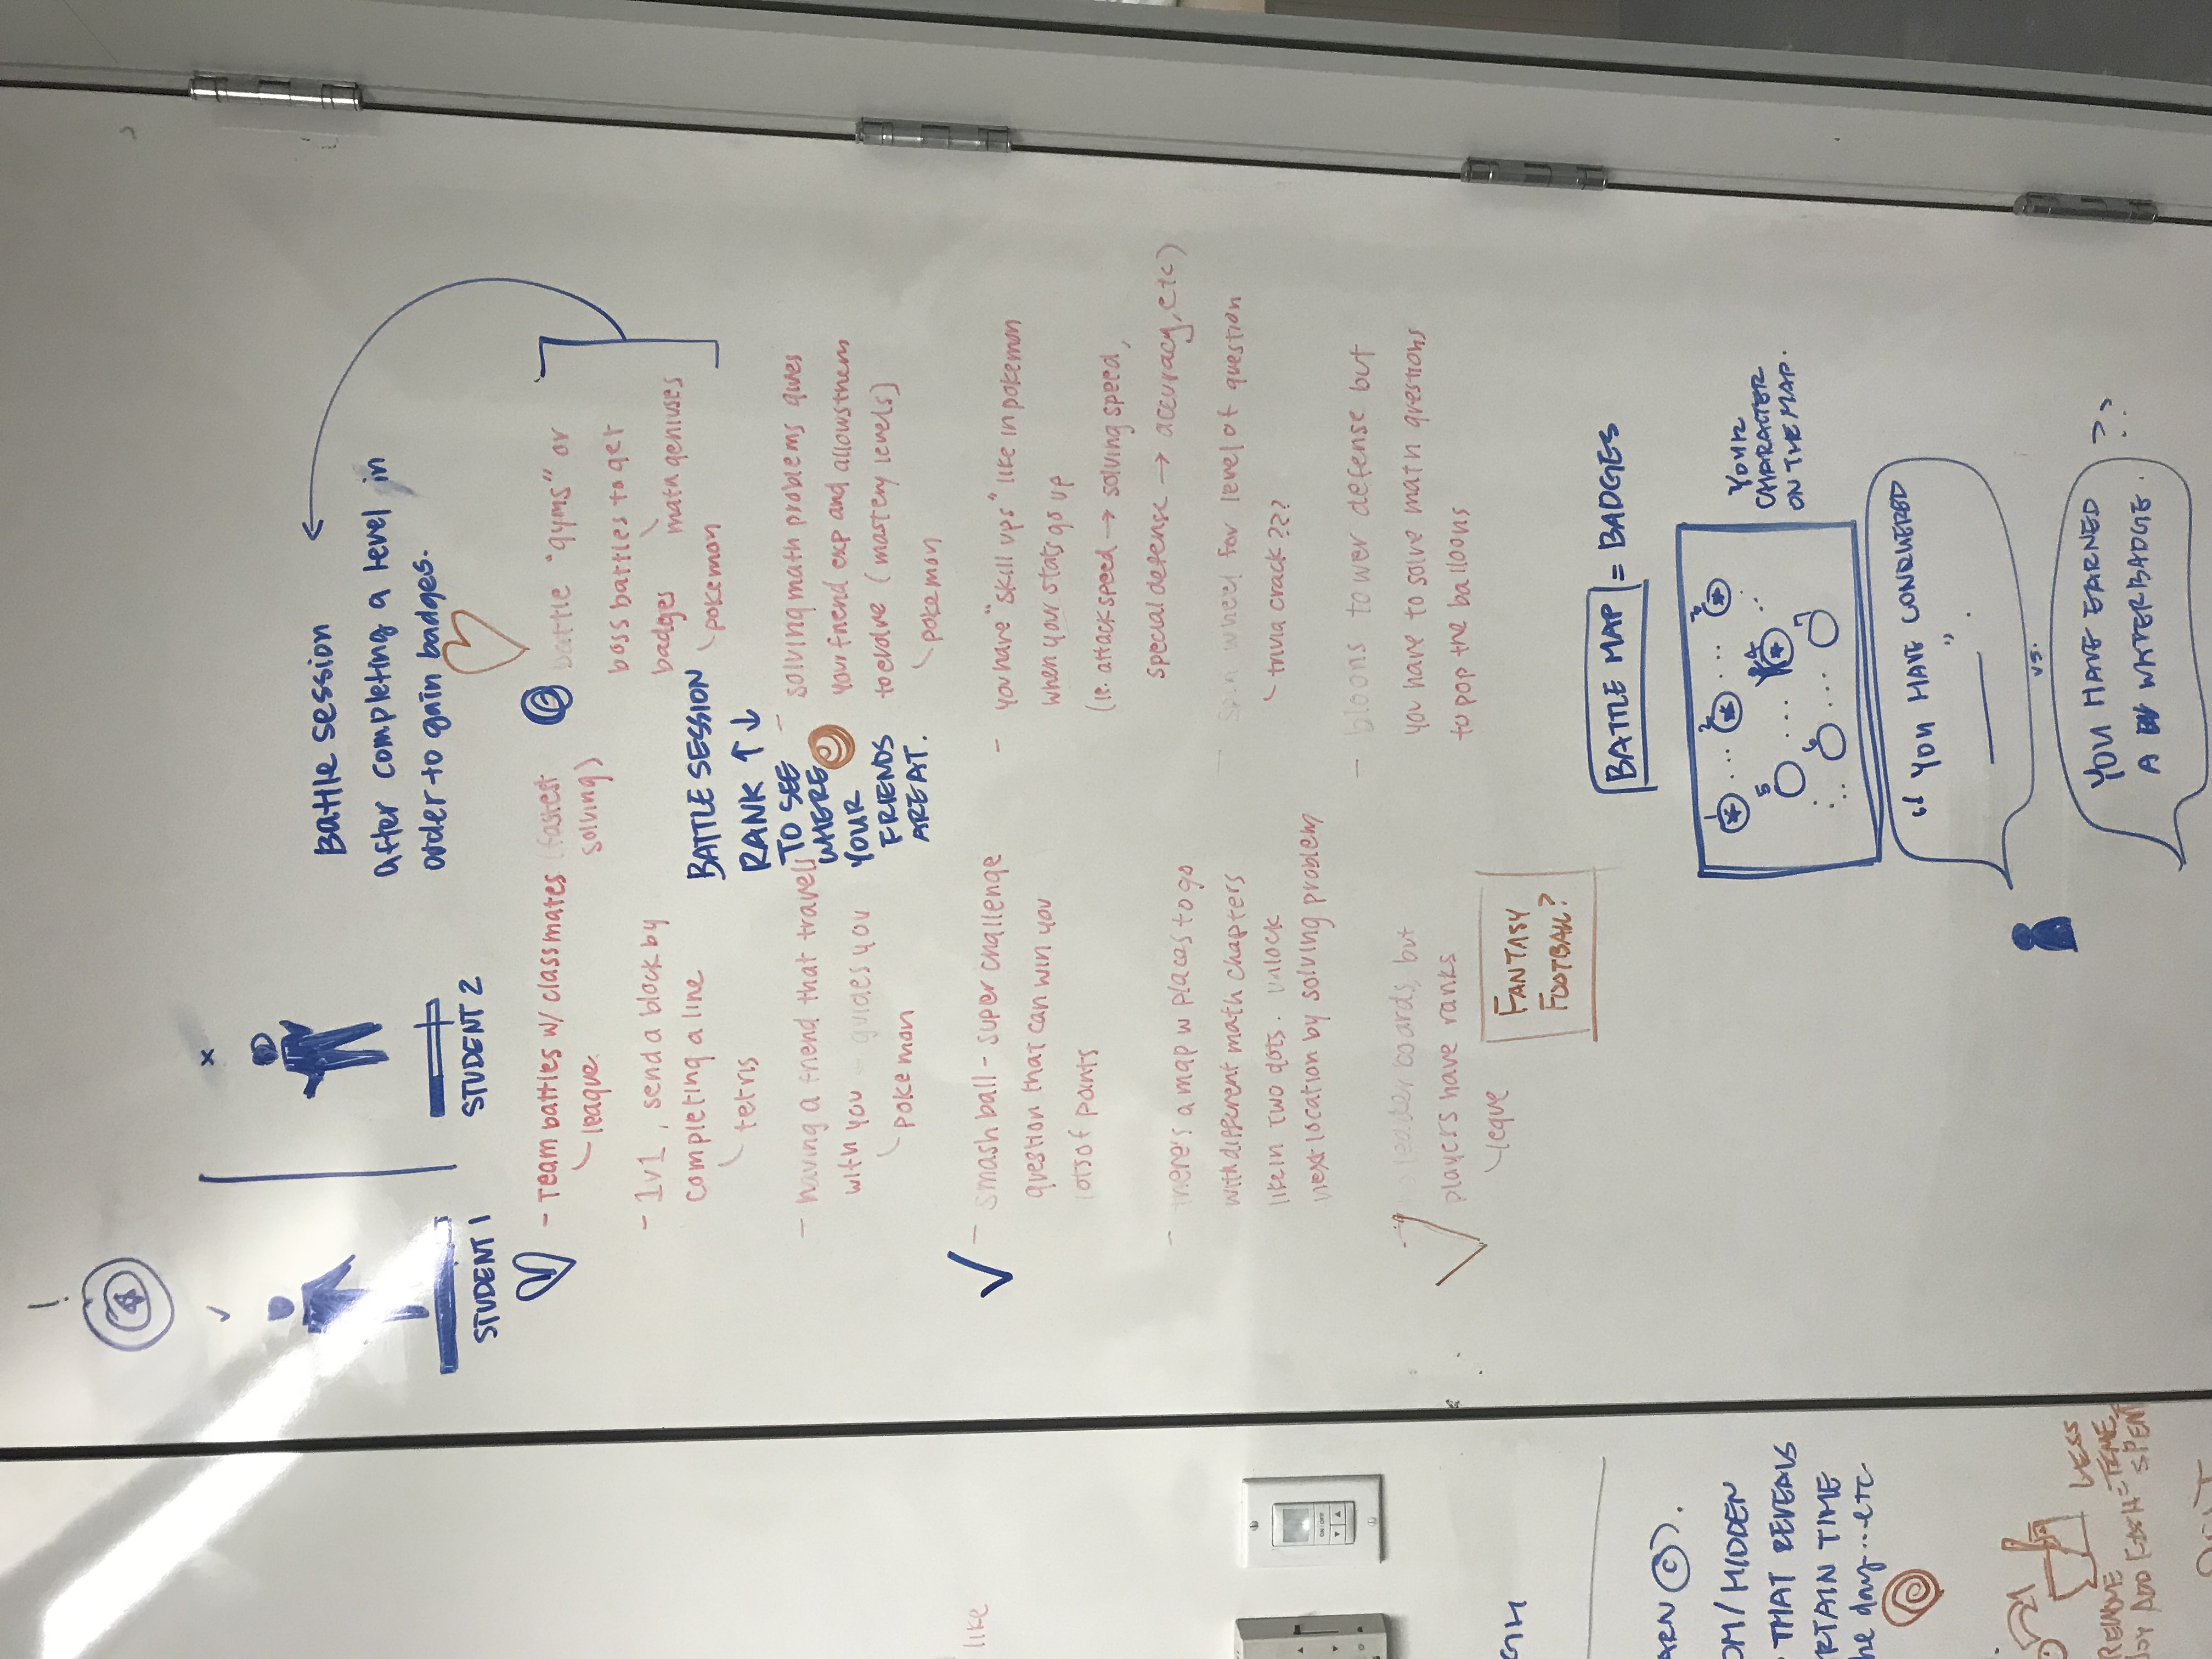 STUDENT 1
STUDENT 2
Battle session
after completing a level in
order to gain badges.
- Team battles w/ classmates (fastest
solving)
league
- 1v1, send a block by
completing a line
tetris
- having a friend that travels
with you guides you
pokemon
- smash ball - super challenge
question that can win you
lots of points
- there's a map w places to go
with different math chapters
like in two dots. unlock
next location by solving problem
leaderboards, but
players have ranks
legue
FANTASY
FOOTBALL?
BATTLE SESSION
RANK ↑↓
TO SEE
WHERE
YOUR
FRIENDS
ARE AT.
battle "gyms" or
boss battles to get
badges math geniuses
pokemon
- solving math problems gives
your friend exp and allows them
to evolve (mastery levels)
pokemon
- you have "skill ups" like in pokemon
when your stats go up
(ie. attack speed → solving speed,
special defense → accuracy, etc)
- spin wheel for level of question
trivia crack???
- bloons tower defense but
you have to solve math questions
to pop the balloons
BATTLE MAP = BADGES
YOUR
CHARACTER
ON THE MAP.
1
2
3
4
5
6
7
"YOU HAVE CONQUERED
".
vs.
YOU HAVE EARNED
A WATER BADGE.
??
like
ARN C).
OM/HIDDEN
THAT REVEALS
RTAIN TIME
he day...etc
LESS
REMOVE
TIME
SPENT
ADD